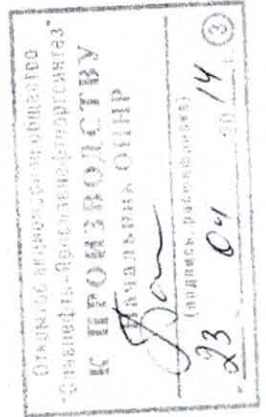 Открытое акционерное общество
"Славнефть-Ярославнефтеоргсинтез"
К ПРОИЗВОДСТВУ
Начальник
(подпись
23 04 2014
3